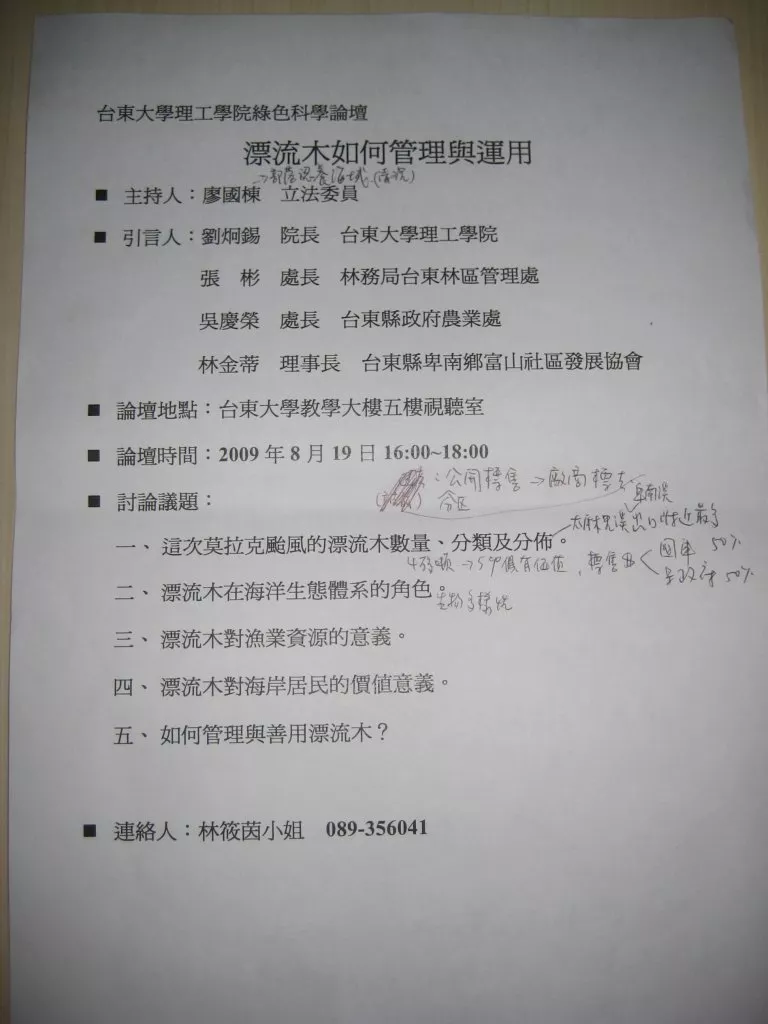 台東大學理工學院綠色科學論壇
漂流木如何管理與運用
■ 主持人：廖國棟 立法委員
■ 引言人：劉炯錫 院長 台東大學理工學院
張 彬 處長 林務局台東林區管理處
吳慶榮 處長 台東縣政府農業處
林金蒂 理事長 台東縣卑南鄉富山社區發展協會
■ 論壇地點：台東大學教學大樓五樓視聽室
■ 論壇時間：2009 年 8 月 19 日 16:00~18:00
：公開標售→廠商標去
■ 討論議題：
分區
卑南溪
太麻里溪出口附近最多
一、 這次莫拉克颱風的漂流木數量、分類及分佈。
國庫 50%
縣政府 50%
二、 漂流木在海洋生態體系的角色。
生物多樣性
三、 漂流木對漁業資源的意義。
四、 漂流木對海岸居民的價值意義。
五、 如何管理與善用漂流木？
■ 連絡人：林筱茵小姐 089-356041